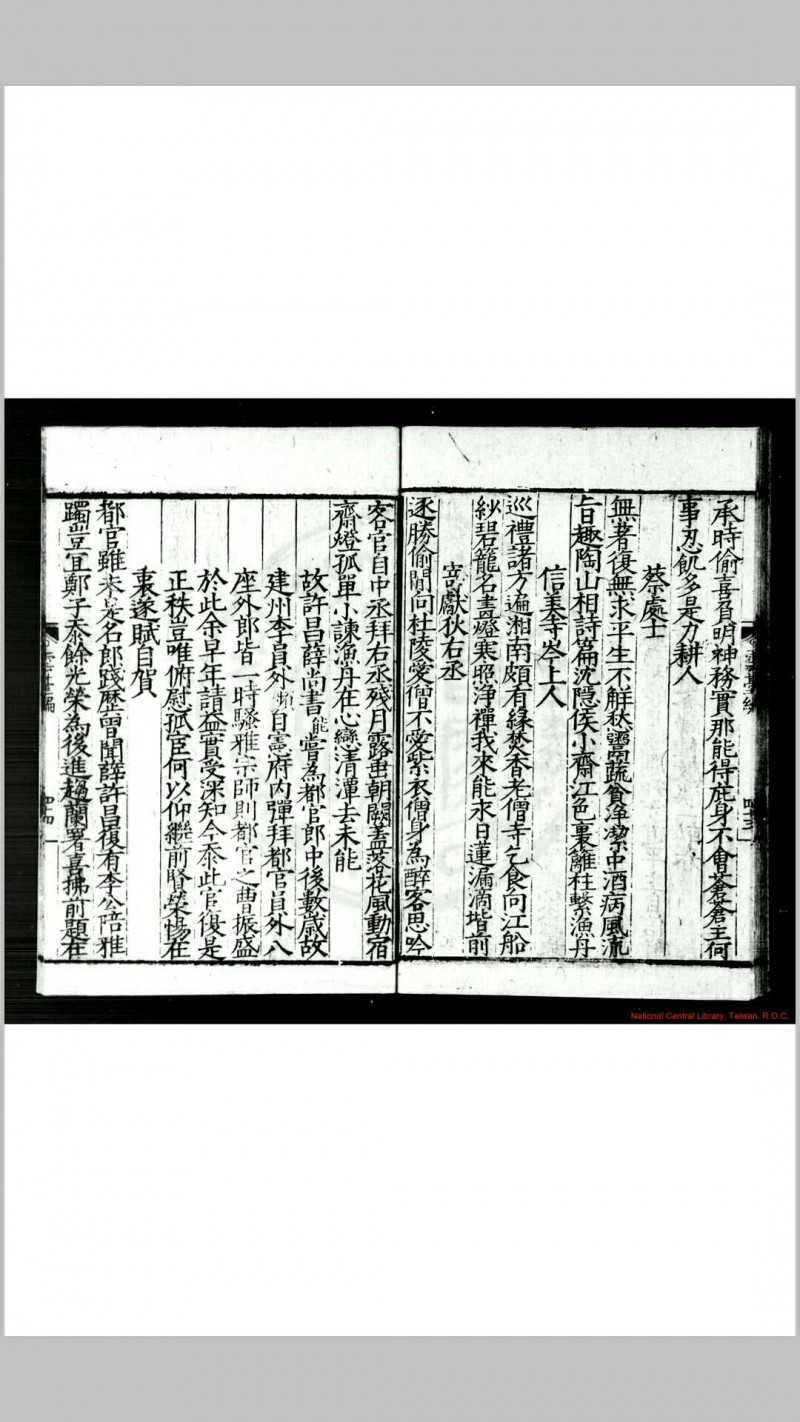 承時偷喜負明神務實那能得庇身不會蒼蒼主何
事忍飢多是力耕人
蔡處士
無著復無求平生不解愁鬻蔬貧淨潔中酒病風流
旨趣陶山相詩篇沈隱侯小齋江色裏籬柱繫漁舟
信美寺岑上人
巡禮諸方遍湘南頗有緣焚香老僧寺乞食向江船
紗碧籠名畫燈寒照淨禪我來能永日蓮漏滴堦前
寄獻狄右丞
逐勝偷閑向杜陵愛僧不愛紫衣僧身為醉客思吟
雲臺編
客官自中丞拜右丞殘月露垂朝闕蓋落花風動宿
齋燈孤單小諫漁舟在心戀清潭去未能
故許昌薛尚書能嘗為都官郎中後數歲故
建州李員外頻自憲府內彈拜都官員外八
座外郎皆一時騷雅宗師則都官之曹振盛
於此余早年請益實受深知今忝此官復是
正秩豈唯俯慰孤宦何以仰繼前賢榮惕在
衷遂賦自賀
都官雖未是名郎踐歷曾聞薛許昌復有李公陪雅
躅豈宜鄭子忝餘光榮為後進趨蘭署喜拂前題在
雲臺編
四四
National Central Library, Taiwan, R.O.C.